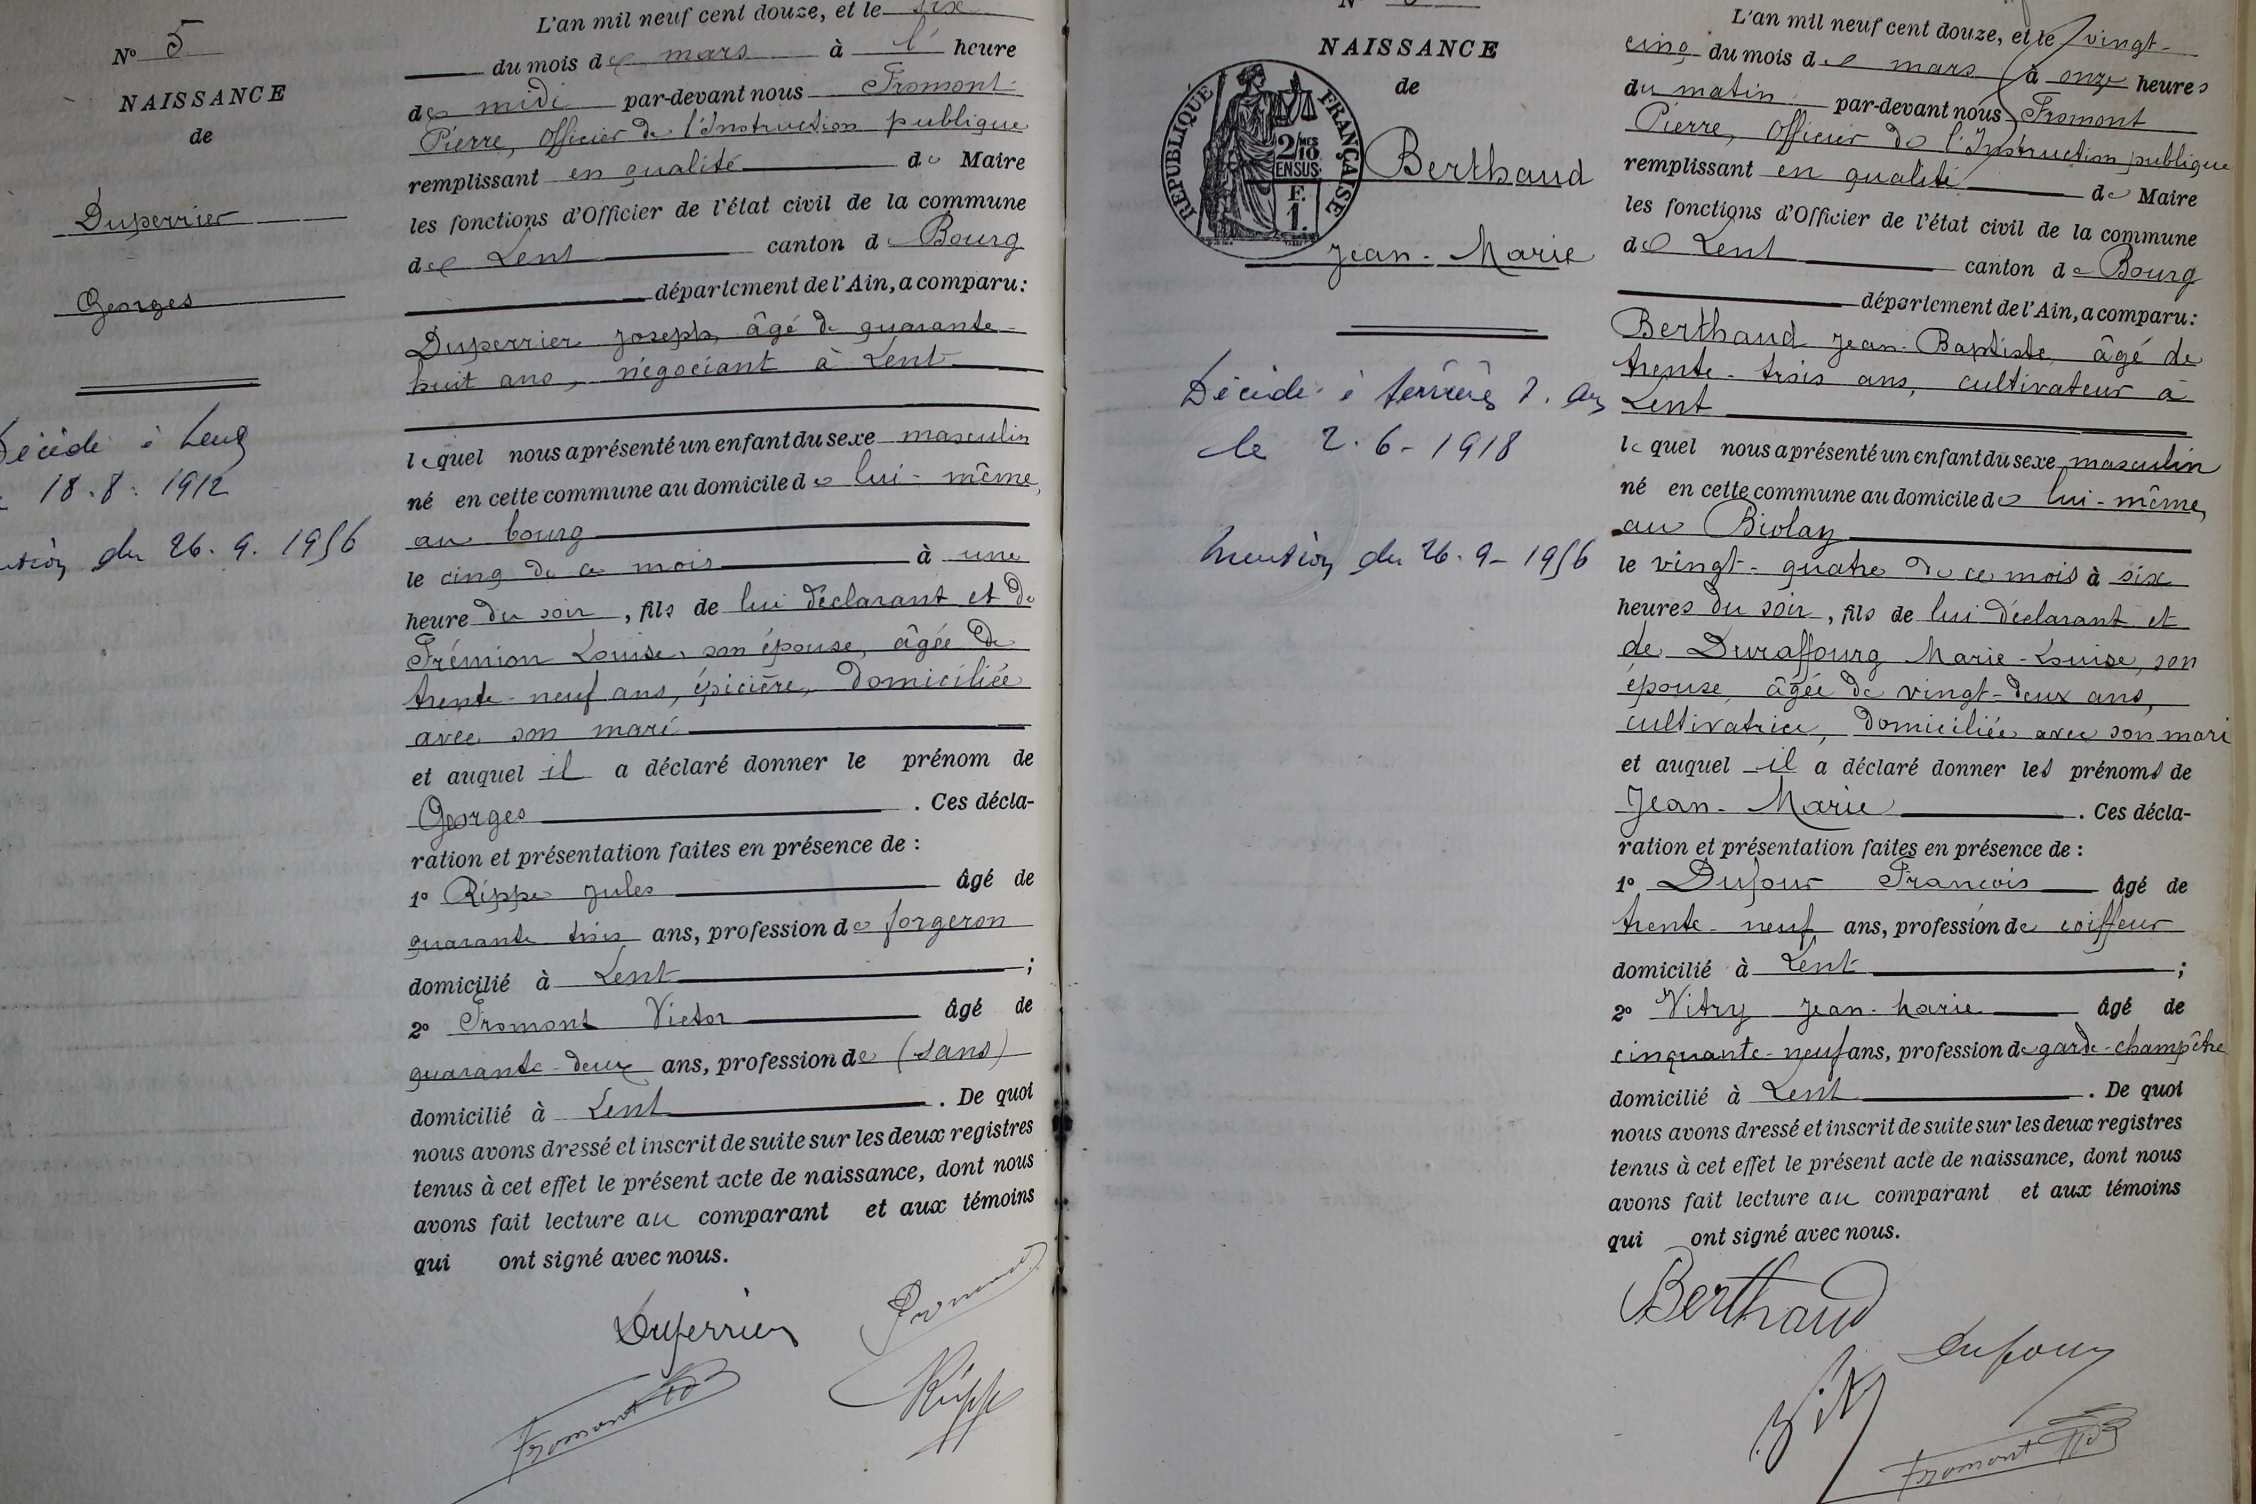 N° 5
NAISSANCE
de
Duperrier
Georges
Décédé à Lent
18.8.1912
du 26.9.1956
L'an mil neuf cent douze, et le six
du mois de mars à l' heure
de midi par-devant nous Fromont
Pierre, Officier de l'Instruction publique
remplissant en qualité de Maire
les fonctions d'Officier de l'état civil de la commune
de Lent canton de Bourg
département de l'Ain, a comparu :
Duperrier Joseph, âgé de quarante-
huit ans, négociant à Lent
lequel nous a présenté un enfant du sexe masculin
né en cette commune au domicile de lui-même,
au bourg
le cinq de ce mois à une
heure du soir, fils de lui déclarant et de
Frémion Louise, son épouse, âgée de
trente-neuf ans, épicière, domiciliée
avec son mari
et auquel il a déclaré donner le prénom de
Georges . Ces décla-
ration et présentation faites en présence de :
1° Rippe Jules âgé de
quarante trois ans, profession de forgeron
domicilié à Lent ;
2° Fromont Victor âgé de
quarante-deux ans, profession de (sans)
domicilié à Lent . De quoi
nous avons dressé et inscrit de suite sur les deux registres
tenus à cet effet le présent acte de naissance, dont nous
avons fait lecture au comparant et aux témoins
qui ont signé avec nous.
Duperrier
Fromont
Rippe
Fromont
N°
NAISSANCE
de
RÉPUBLIQUE FRANÇAISE
2/10
EN SUS
F.
1.
Berthaud
Jean-Marie
Décédé à
le 2.6-1918
Mention du 26.9-1956
L'an mil neuf cent douze, et le vingt-
cinq du mois de mars à onze heures
du matin par-devant nous Fromont
Pierre, Officier de l'Instruction publique
remplissant en qualité de Maire
les fonctions d'Officier de l'état civil de la commune
de Lent canton de Bourg
département de l'Ain, a comparu :
Berthaud Jean-Baptiste, âgé de
trente-trois ans, cultivateur à
Lent
lequel nous a présenté un enfant du sexe masculin
né en cette commune au domicile de lui-même,
au Biolay
le vingt-quatre de ce mois à six
heures du soir, fils de lui déclarant et
de Duraffourg Marie-Louise, son
épouse, âgée de vingt-deux ans,
cultivatrice, domiciliée avec son mari
et auquel il a déclaré donner les prénoms de
Jean-Marie . Ces décla-
ration et présentation faites en présence de :
1° Dufour François âgé de
trente-neuf ans, profession de coiffeur
domicilié à Lent ;
2° Vitry Jean-Marie âgé de
cinquante-neuf ans, profession de garde-champêtre
domicilié à Lent . De quoi
nous avons dressé et inscrit de suite sur les deux registres
tenus à cet effet le présent acte de naissance, dont nous
avons fait lecture au comparant et aux témoins
qui ont signé avec nous.
Berthaud
Dufour
Vitry
Fromont